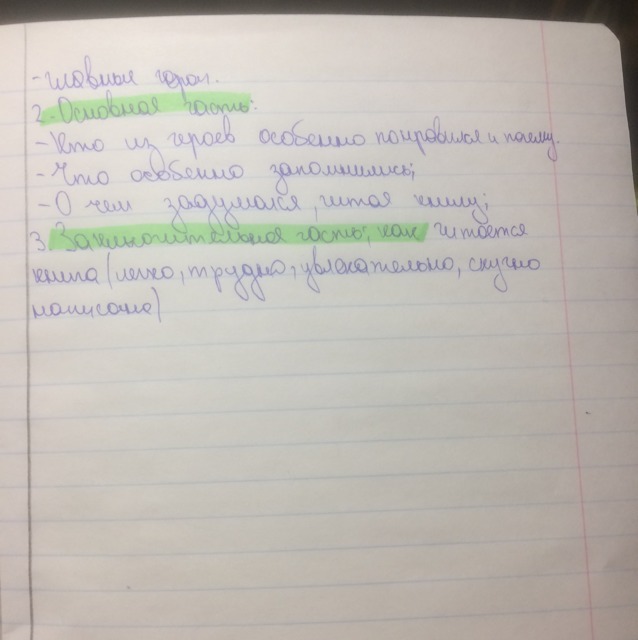 - главные герои.
2. Основная часть:
- Кто из героев особенно понравился и почему.
- Что особенно запомнилось;
- О чем задумался, читая книгу;
3. Заключительная часть; как читается
книга (легко, трудно, увлекательно, скучно
написана)